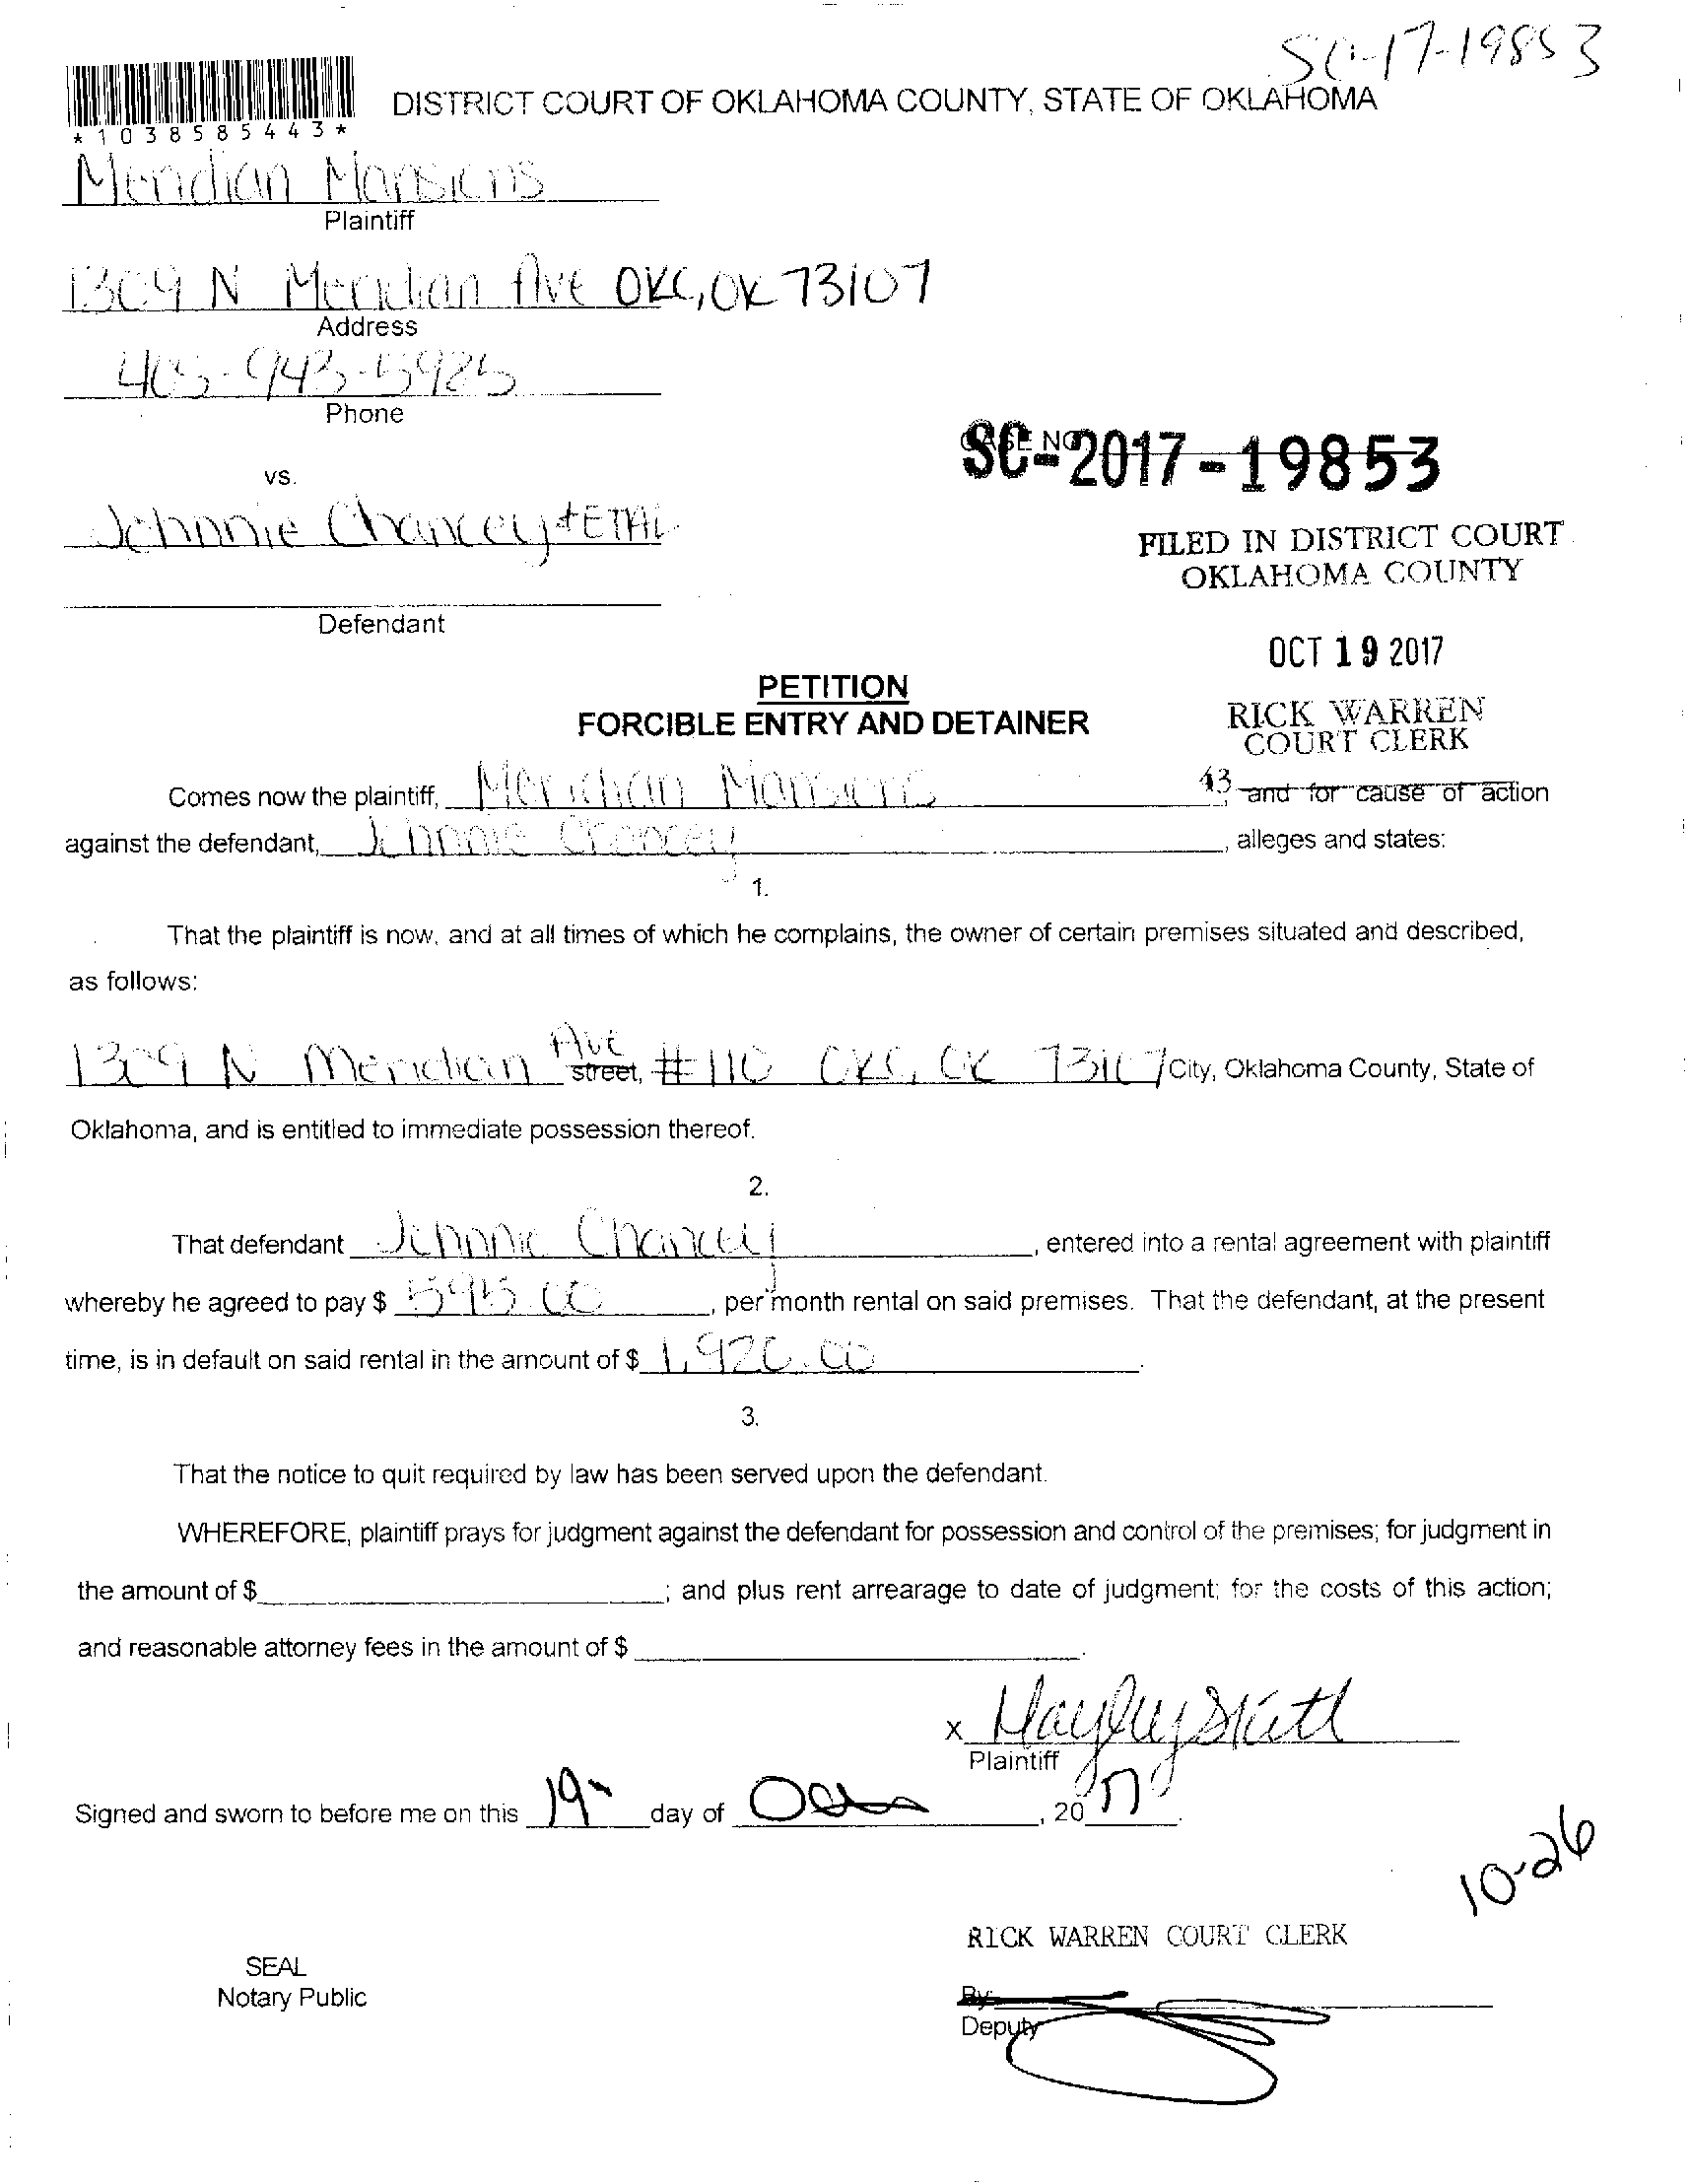 SC-17-19853
DISTRICT COURT OF OKLAHOMA COUNTY, STATE OF OKLAHOMA
*1038585443*
Meridian Mansions
Plaintiff
1309 N Meridian Ave OKC, OK 73107
Address
405-943-5925
Phone
CASE NO
SC-2017-19853
vs.
Johnnie Chancey + ETAL
FILED IN DISTRICT COURT
OKLAHOMA COUNTY
Defendant
OCT 19 2017
PETITION
RICK WARREN
FORCIBLE ENTRY AND DETAINER
COURT CLERK
43
Comes now the plaintiff, Meridian Mansions, and for cause of action
against the defendant, Johnnie Chancey, alleges and states:
1.
That the plaintiff is now, and at all times of which he complains, the owner of certain premises situated and described,
as follows:
1309 N Meridian Ave street, #110 OKC, OK 73107 City, Oklahoma County, State of
Oklahoma, and is entitled to immediate possession thereof.
2.
That defendant Johnnie Chancey, entered into a rental agreement with plaintiff
whereby he agreed to pay $ 595.00, per month rental on said premises. That the defendant, at the present
time, is in default on said rental in the amount of $ 1,920.00.
3.
That the notice to quit required by law has been served upon the defendant.
WHEREFORE, plaintiff prays for judgment against the defendant for possession and control of the premises; for judgment in
the amount of $ ; and plus rent arrearage to date of judgment; for the costs of this action;
and reasonable attorney fees in the amount of $ .
x Hayley
Plaintiff
Signed and sworn to before me on this 19 day of Oct, 20 17.
10-26
RICK WARREN COURT CLERK
SEAL
Notary Public
By:
Deputy